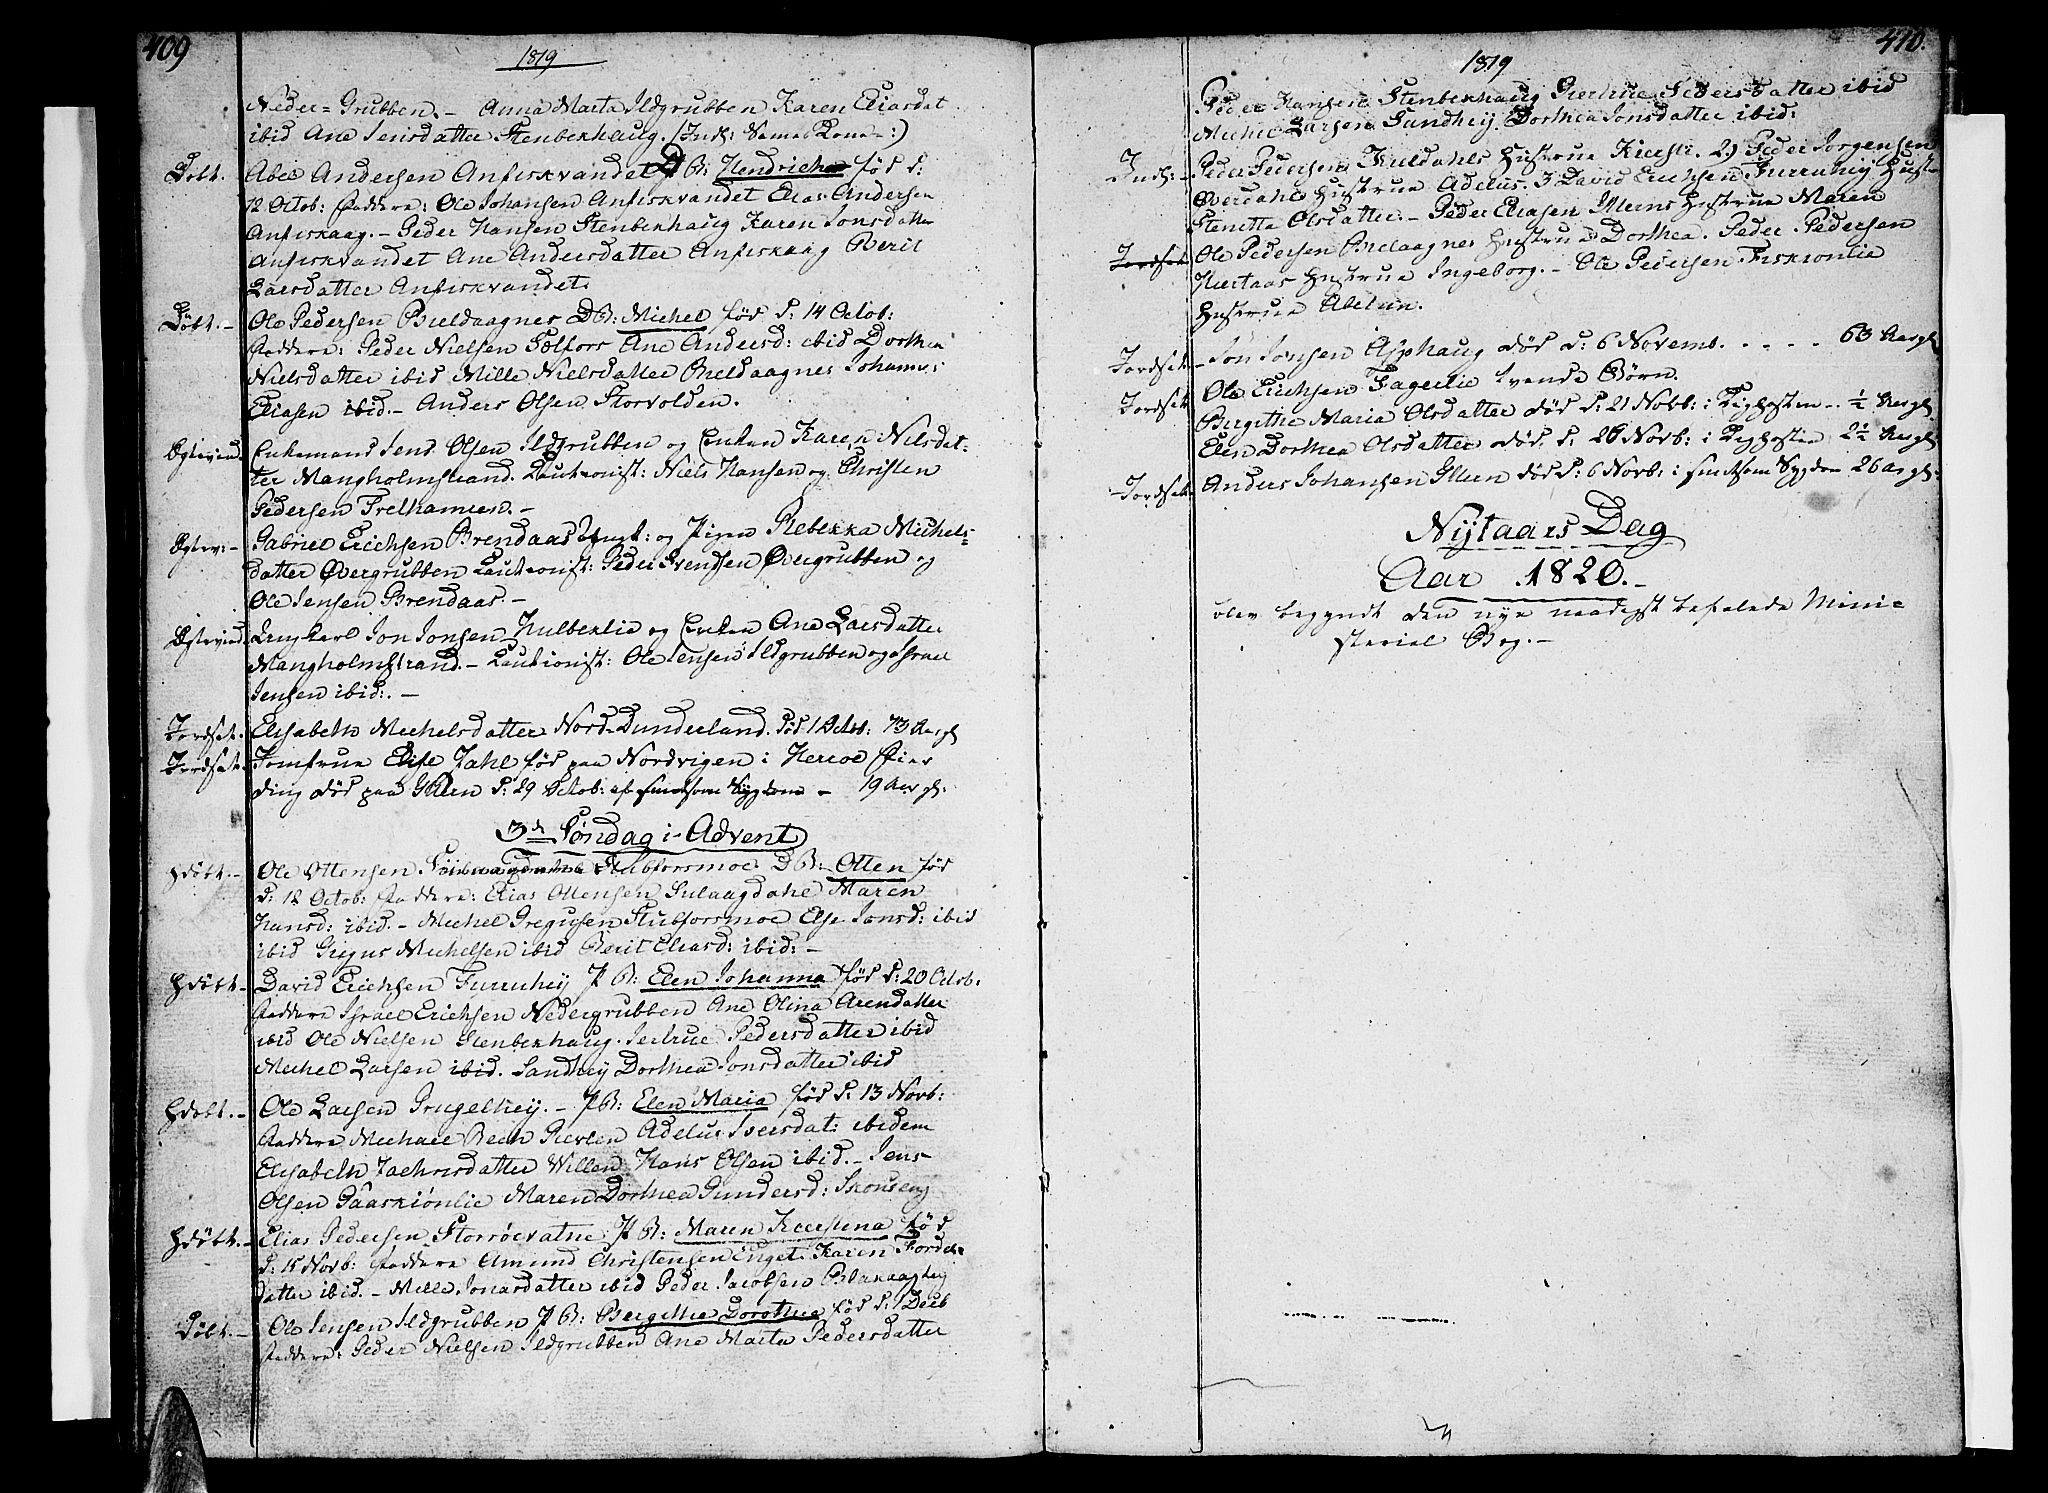 409
1819
Neder-Grubben. - Anna Marta Ildgrubben Karen Eliasdat
ibid Ane Jensdatter Stenbekhaug. (Inds: Samas Kone -:)
Døbt. Abel Andersen Anfiskvandet P B: Hendricha fød d:
12 Octob: Faddere: Ole Johansen Anfiskvandet Elias Andersen
Anfiskaag. - Peder Hansen Stenbekhaug Karen Jonsdatter
Anfiskvandet Ane Andersdatter Anfiskaag Berit
Larsdatter Anfiskvandet.
Døbt. - Ole Pedersen Bieldaagnes D B: Michel fød d: 14 Octob:
Faddere: Peder Nielsen Selfors Ane Andersd: ibid Dorthea
Nielsdatter ibid Mille Nielsdatter Bieldaagnes Johanes
Eliasen ibid. - Anders Olsen Storvolden.
Egtevied. Enkemand Jens Olsen Ildgrubben og Enken Karen Nilsdat-
ter Mangholmstrand. Cautionist: Niels Hansen og Christen
Pedersen Trelhamren. -
Egtev: - Gabriel Erichsen Brendaas Ungk: og Pigen Rebekka Michels-
datter Øvergrubben Cautionist: Peder Svendsen Øvergrubben og
Ole Jensen Brendaas. -
Egtevied. Ungkarl Jon Jonsen Hulbeklie og Enken Ane Larsdatter
Mangholmstrand. - Cautionist: Ole Jensen Ildgrubben og Israel
Jensen ibid:. -
Jordsat. Elisabeth Michelsdatter Nord-Dunderland. Død 1 Octob: 73 Aar gl
Jordsat. Jomfrue Elise Zahl fød paa Nordvigen i Heroe Fier
ding død paa Gruben d: 29 Octob: af smitsom Sygdom - 19 Aar gl:
3d Søndag i Advent
Hdøbt. - Ole Ottensen Stubforsmoe D B: Otten fød
d: 12 Octob: Faddere: Elias Ottensen Sulaagdahl Maren
Hansd: ibid. - Michel Gregusen Stubforsmoe Else Jonsd: ibid
ibid Gregus Michelsen ibid Berit Eliasd: ibid: -
Hdøbt - David Erichsen Furruhey P B: Elen Johanna fød d: 20 Octob:
Faddere Israel Erichsen Nedergrubben Ane Olina Arendatter
ibid Ole Nielsen Stenbekhaug. Jertrue Pedersdatter ibid
Michel Larsen ibid. Sandhey Dorthea Jonsdatter ibid
Hdøbt. - Ole Larsen Brugelhey. - P B: Elen Maria fød d: 13 Novb:
Faddere Michael Bech Revlen Adelus Iversdat: ibidem
Elisabeth Zachrisdatter Willen Hans Olsen ibid. - Jens
Olsen Gaaskiønlie Maren Dorthea Gundersd: Skonseng
Hdøbt. - Elias Pedersen Storrøevatne P B: Maren Kierstina fød
d: 15 Novb: Faddere Amund Christensen Enget Karen Tordes
datter ibid. - Mille Jonasdatter ibid Peder Jacobsen Blakaashey
Døbt. - Ole Jensen Ildgrubben P B: Bergithe Dorothea fød d: 1 Decb
Faddere: Peder Nielsen Ildgrubben Ane Marta Pedersdatter
410.
1819
Peder Hansen Stenbekhaug Giertrue Pedersdatter ibid
Michel Larsen Sandhey Dorthea Jonsdatter ibid:
Inds: - Peder Pedersen Kieldahls Hustrue Kiersti. 2) Peder Jorgensen
Øverdahls Hustrue Adelus. 3 David Erichsen Furruhey Hust-
Stenetta Olsdatter. - Peder Eliasen Ytterns Hustrue Maren
Jordsat Ole Pedersen Bieldaagnes Hustrue Dorthea. Peder Pedersen
Hiertaas Hustrue Ingeborg. - Ole Pedersen Fiskionlie
Hustrue Abelun.
Jordsat - Jon Jonsen Asphaug død d: 6 Novemb. - - - - 63 Aar gl.
Jordsat Ole Erichsen Fagerlie tvende Børn.
Bergithe Maria Olsdatter død d: 21 Novb: i Kighosten - ½ Aar gl.
Elen Dorthea Olsdatter død d: 26 Novb: i Kighosten 2½ Aar gl:
Jordsat. Anders Johansen Yttern død d: 6 Novb: i smitsom Sygdom 26 ar gl:
Nytaars Dag
Aar 1820. -
blev begyndt den nye naadigst befalede Mini-
sterial Bog. -